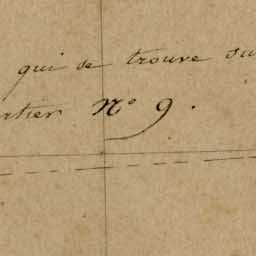 qui se trouve su
rtier N° 9.